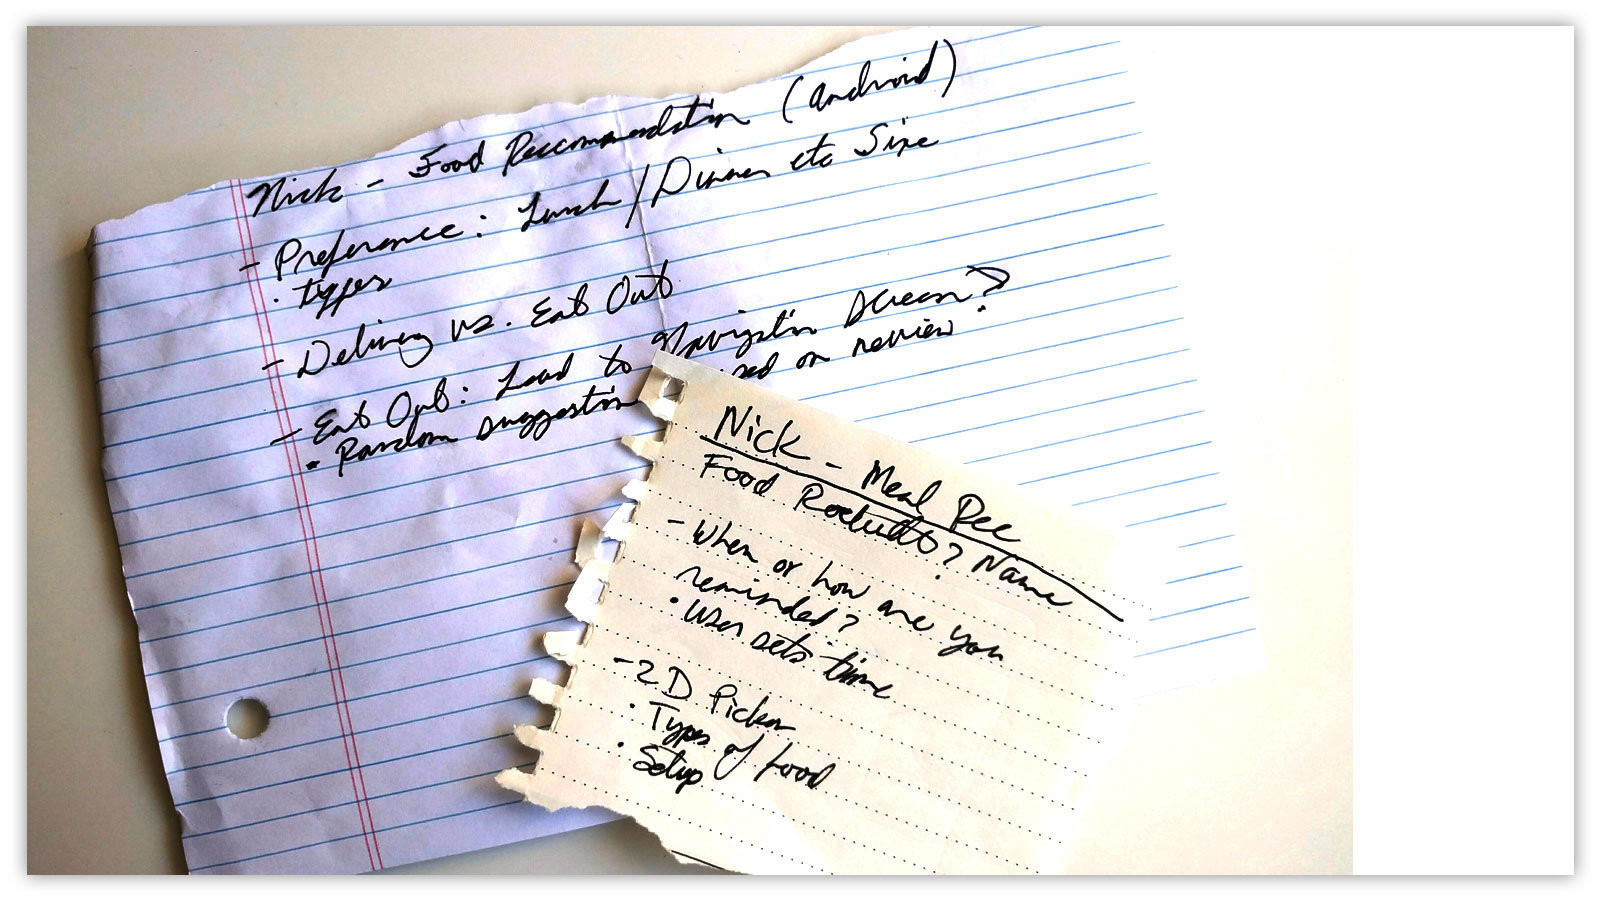 Nick - Food Recommendation (Android)
- Preference: Lunch / Dinner etc Size
· Types
- Delivery vs. Eat Out
- Eat Out: Lead to Navigation Screen?
• Random suggestion on review?
Nick - Meal Rec
Food ? Name
- When or how are you
reminded?
• User sets time
- 2D Picker
• Types of food
• Setup